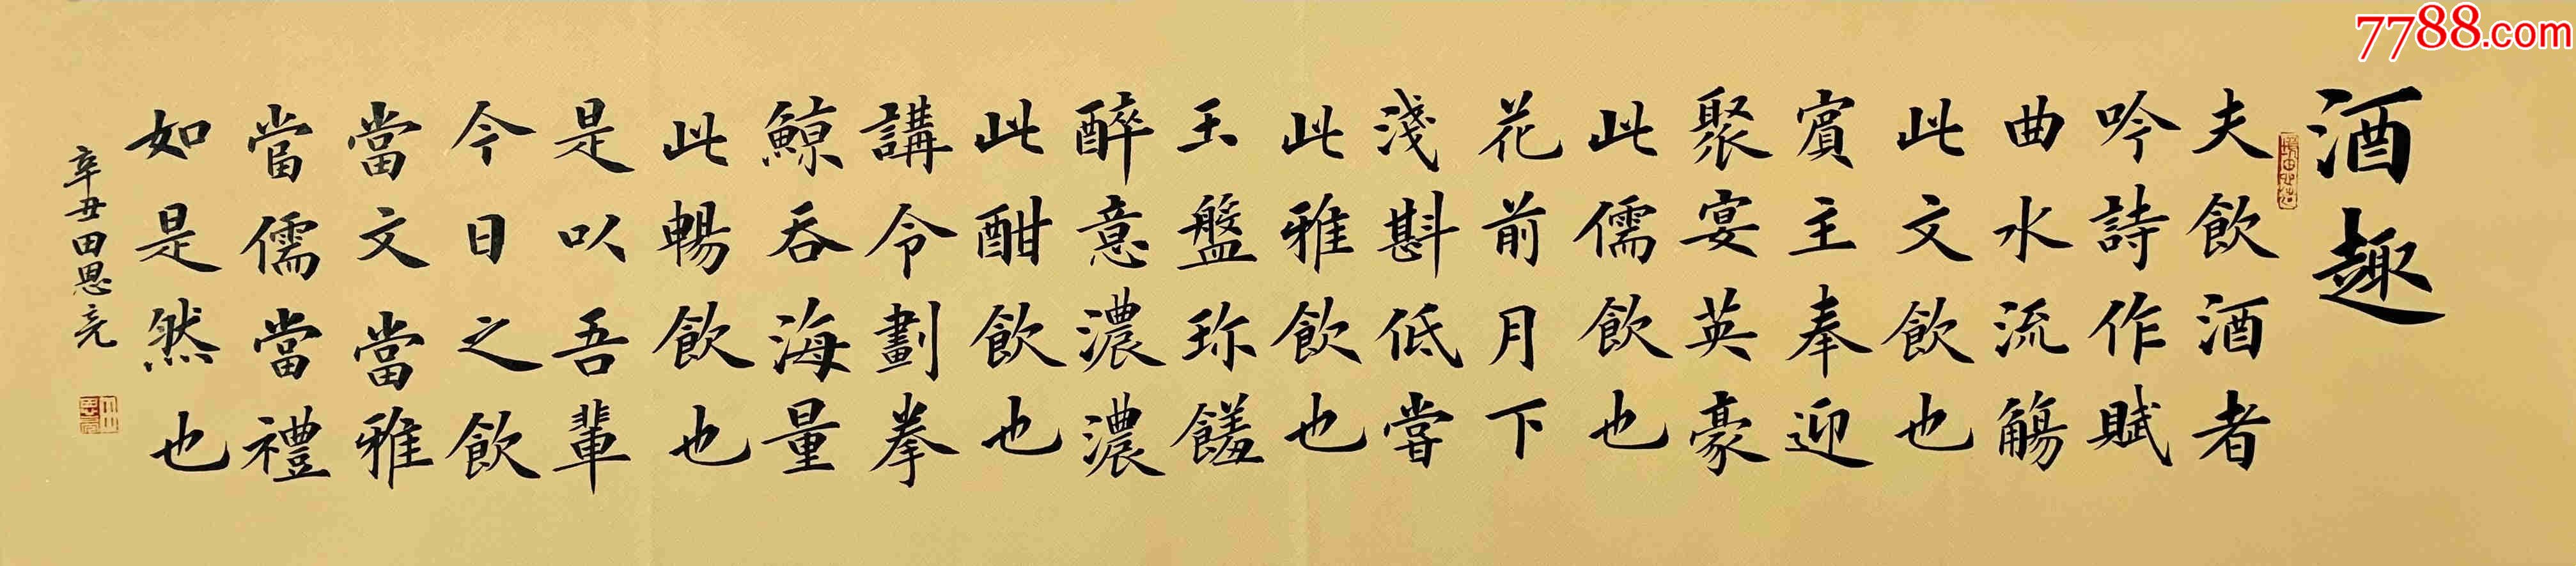 酒趣
夫飲酒者
吟詩作賦
曲水流觴
此文飲也
賓主奉迎
聚宴英豪
此儒飲也
花前月下
淺斟低嘗
此雅飲也
玉盤珎饈
醉意濃濃
此酣飲也
講令劃拳
鯨吞海量
此暢飲也
是以吾輩
今日之飲
當文當雅
當儒當禮
如是然也
辛丑田恩亮
7788.com